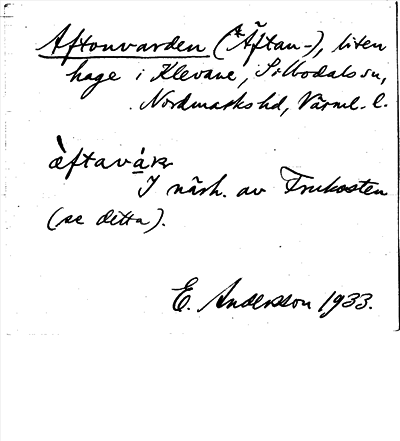 Aftonvarden (*Äftan-), liten
hage i Klevane, Sillbodals sn,
Nordmarks hd, Värml. l.
æ̀ftavákr
I närh. av Frukosten
(se detta).
E. Andersson 1933.